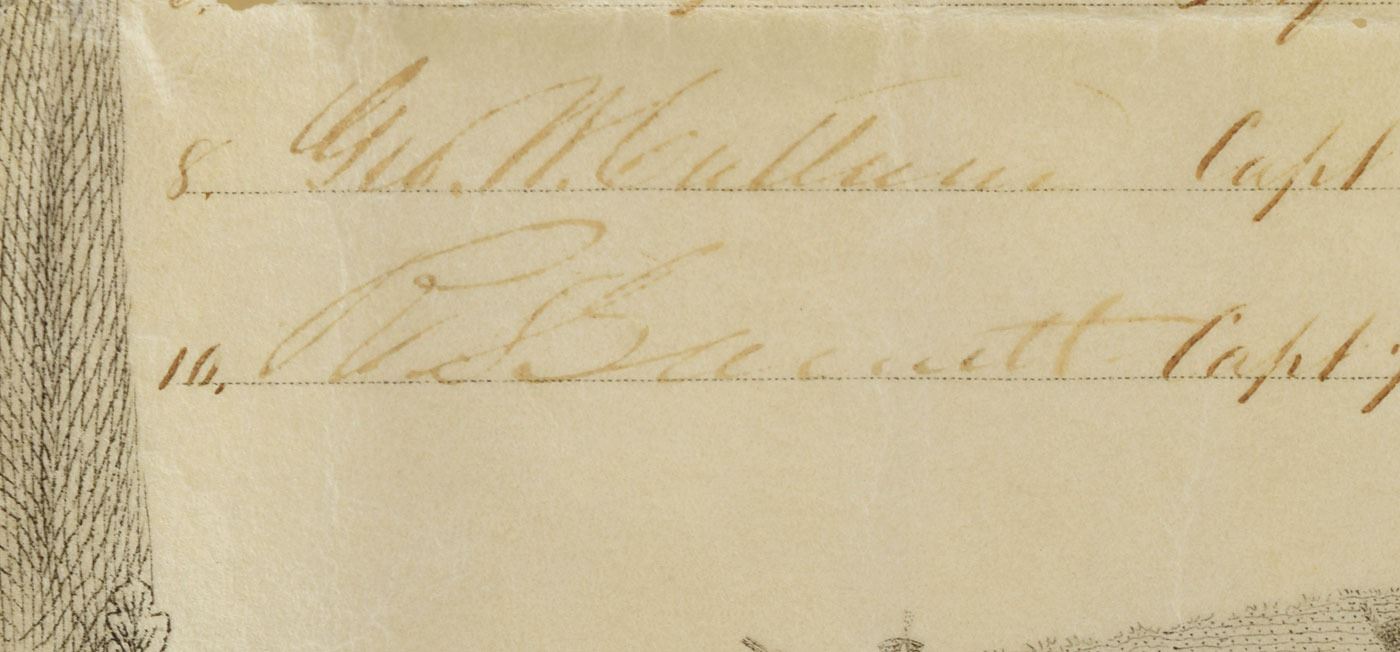 8. Geo. W. Cullum Capt
10, Bennett Capt